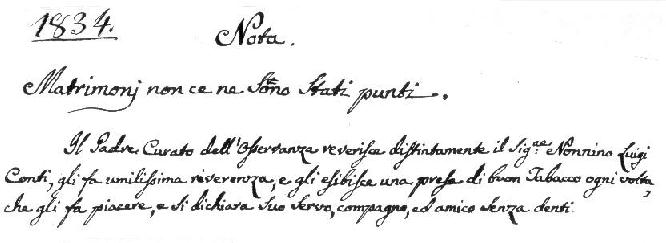 1834.
Nota.
Matrimonj non ce ne sono stati punti.
Il Padre Curato dell'Osservanza reverisce distintamente il Sig.re Nonnino Luigi
Conti, gli fa umilissima riverenza, e gli esibisce una presa di buon Tabacco ogni volta,
che gli fa piacere, e si dichiara suo servo, compagno, ed amico senza denti.